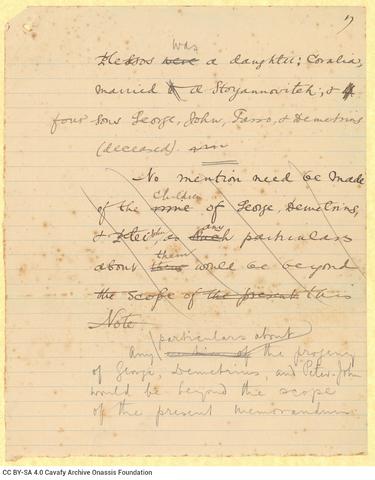 7
was
Plessos were a daughter: Coralia,
married to a Stoyannovitch; & 4
four sons George, John, Tasso, & Demetrius
(deceased).
No mention need be made
Children
of the mme of George, Demetrius,
John any
& Peter, as such particulars
them
about this would be beyond
the scope of the present this
Note.
particulars about
Any of the progeny
of George, Demetrius, and Peter-John
would be beyond the scope
of the present memorandum
CC BY-SA 4.0 Cavafy Archive Onassis Foundation